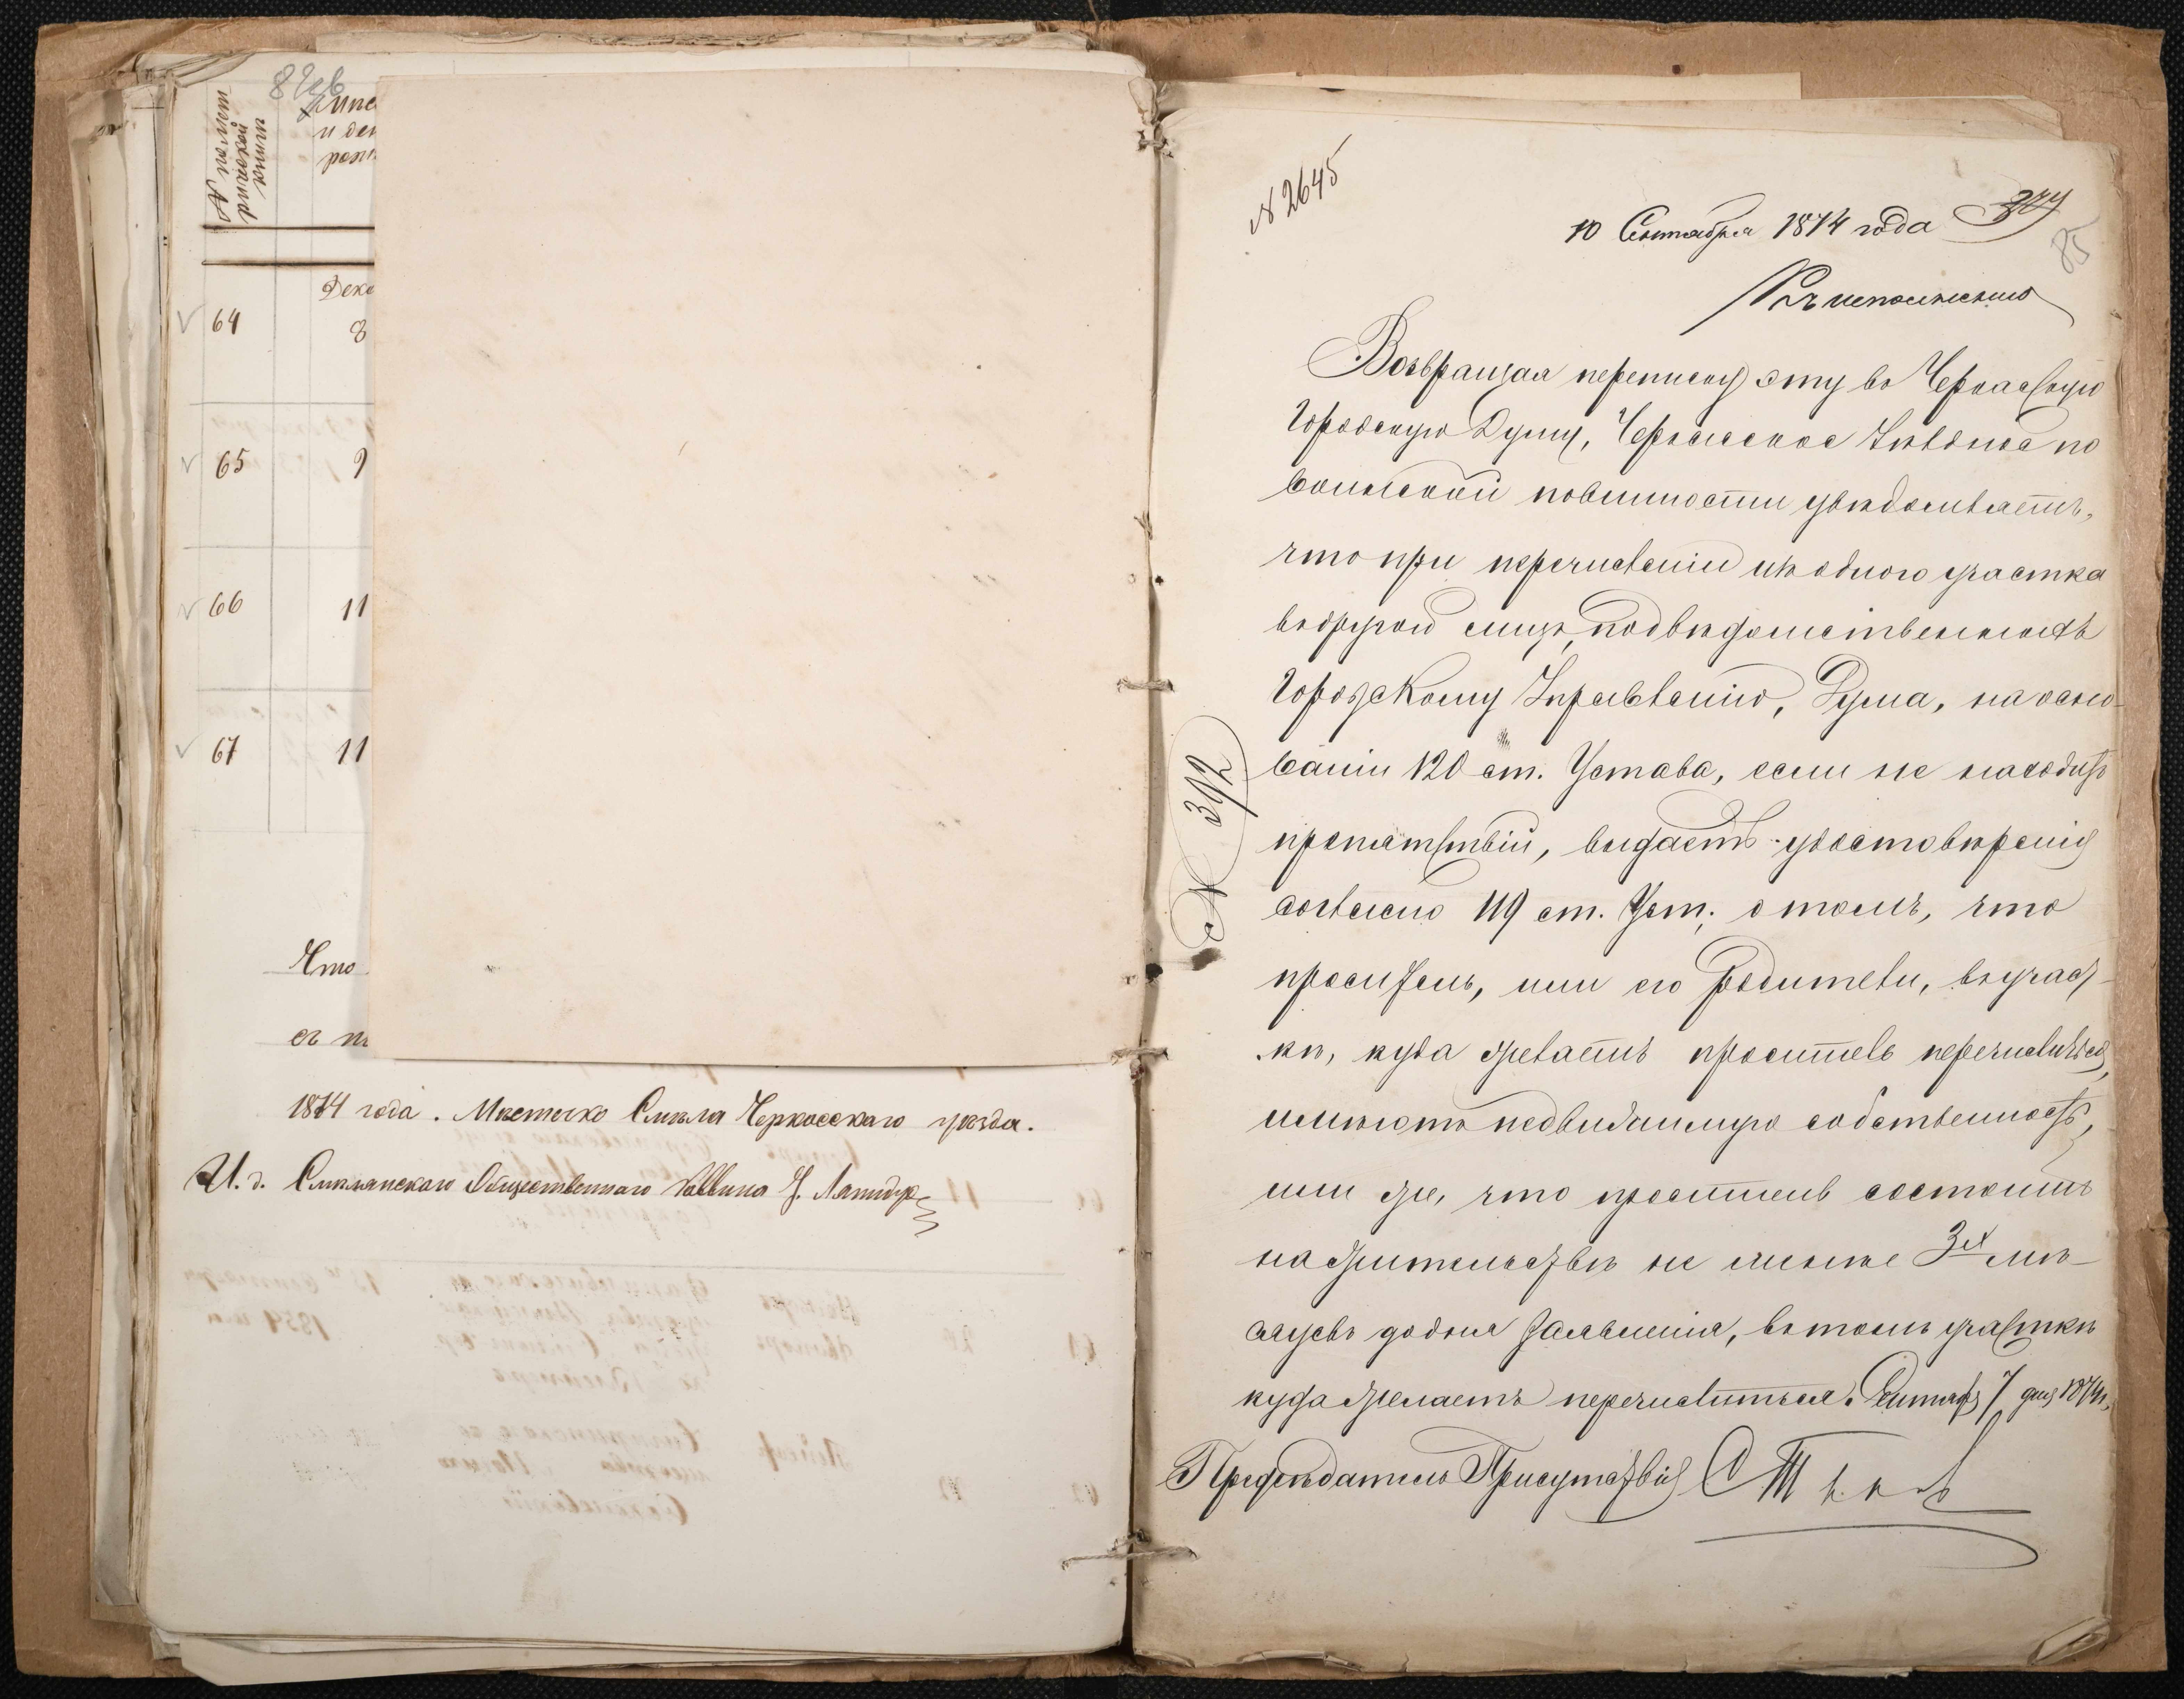 № по мет
рической
книги
и ден
Дека
64
8
65
9
66
11
67
11
Что
съ
1874 года. Мѣстечко Смѣла Черкасскаго уѣзда.
И. д. Смѣлянскаго Общественнаго Раввина
№ 2645
10 Сентября 1874 года
85
Къ исполненію
Возвращая переписку эту въ Черкасскую
Городскую Думу, Черкасское Уѣздное по
воинской повинности увѣдомляетъ,
что при перечисленіи изъ одного участка
въ другой лицъ, подвѣдомственныхъ
Городскому Управленію, Дума, на осно-
ваніи 120 ст. Устава, если не находитъ
препятствій, выдаетъ удостовѣренія
согласно 119 ст. Уст. о томъ, что
проситель, или его родители, въ участ-
кѣ, куда желаетъ проситель перечислиться,
имѣютъ недвижимую собственность,
или же, что проситель состоитъ
на жительствѣ не менѣе 3х мѣ-
сяцевъ до дня заявленія, въ томъ участкѣ
куда желаетъ перечислиться. Сентября 7 дня 1874 г.
Предсѣдатель Присутствія
№ 392